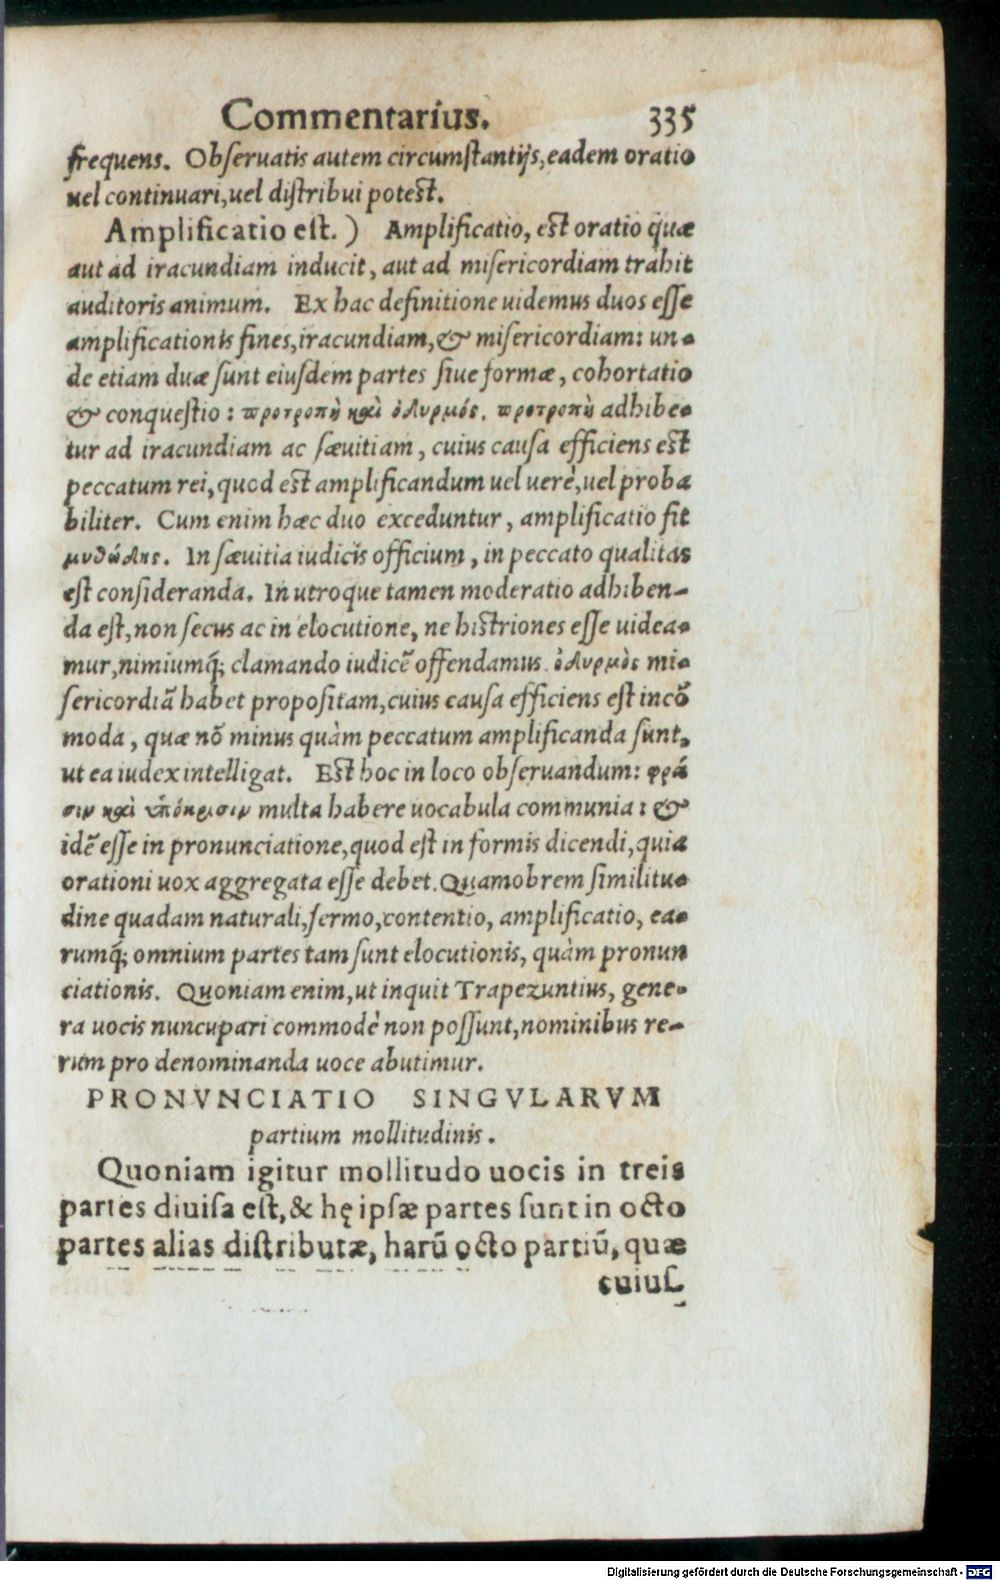 Commentarius. 335
frequens. Obseruatis autem circumstantijs, eadem oratio
uel continuari, uel distribui potest.
Amplificatio est. ) Amplificatio, est oratio quæ
aut ad iracundiam inducit, aut ad misericordiam trahit
auditoris animum. Ex hac definitione uidemus duos esse
amplificationis fines, iracundiam, & misericordiam: un-
de etiam duæ sunt eiusdem partes siue formæ, cohortatio
& conquestio: προτροπὴ καὶ ὀδυρμός. προτροπὴ adhibe-
tur ad iracundiam ac sæuitiam, cuius causa efficiens est
peccatum rei, quod est amplificandum uel uerè, uel proba
biliter. Cum enim hæc duo exceduntur, amplificatio fit
μυθώδης. In sæuitia iudicis officium, in peccato qualitas
est consideranda. In utroque tamen moderatio adhiben-
da est, non secus ac in elocutione, ne histriones esse uidea-
mur, nimiumq́; clamando iudicē offendamus. ὀδυρμὸς mi-
sericordiā habet propositam, cuius causa efficiens est incō
moda, quæ nō minus quàm peccatum amplificanda sunt,
ut ea iudex intelligat. Est hoc in loco obseruandum: φρά
σιν καὶ ὑπόκρισιν multa habere uocabula communia: &
idē esse in pronunciatione, quod est in formis dicendi, quia
orationi uox aggregata esse debet. Quamobrem similitu-
dine quadam naturali, sermo, contentio, amplificatio, ea-
rumq́; omnium partes tam sunt elocutionis, quàm pronun
ciationis. Quoniam enim, ut inquit Trapezuntius, gene-
ra uocis nuncupari commodè non possunt, nominibus re-
rum pro denominanda uoce abutimur.
PRONVNCIATIO SINGVLARVM
partium mollitudinis.
Quoniam igitur mollitudo uocis in treis
partes diuisa est, & hę ipsæ partes sunt in octo
partes alias distributæ, harū octo partiū, quæ
cuius
Digitalisierung gefördert durch die Deutsche Forschungsgemeinschaft - DFG